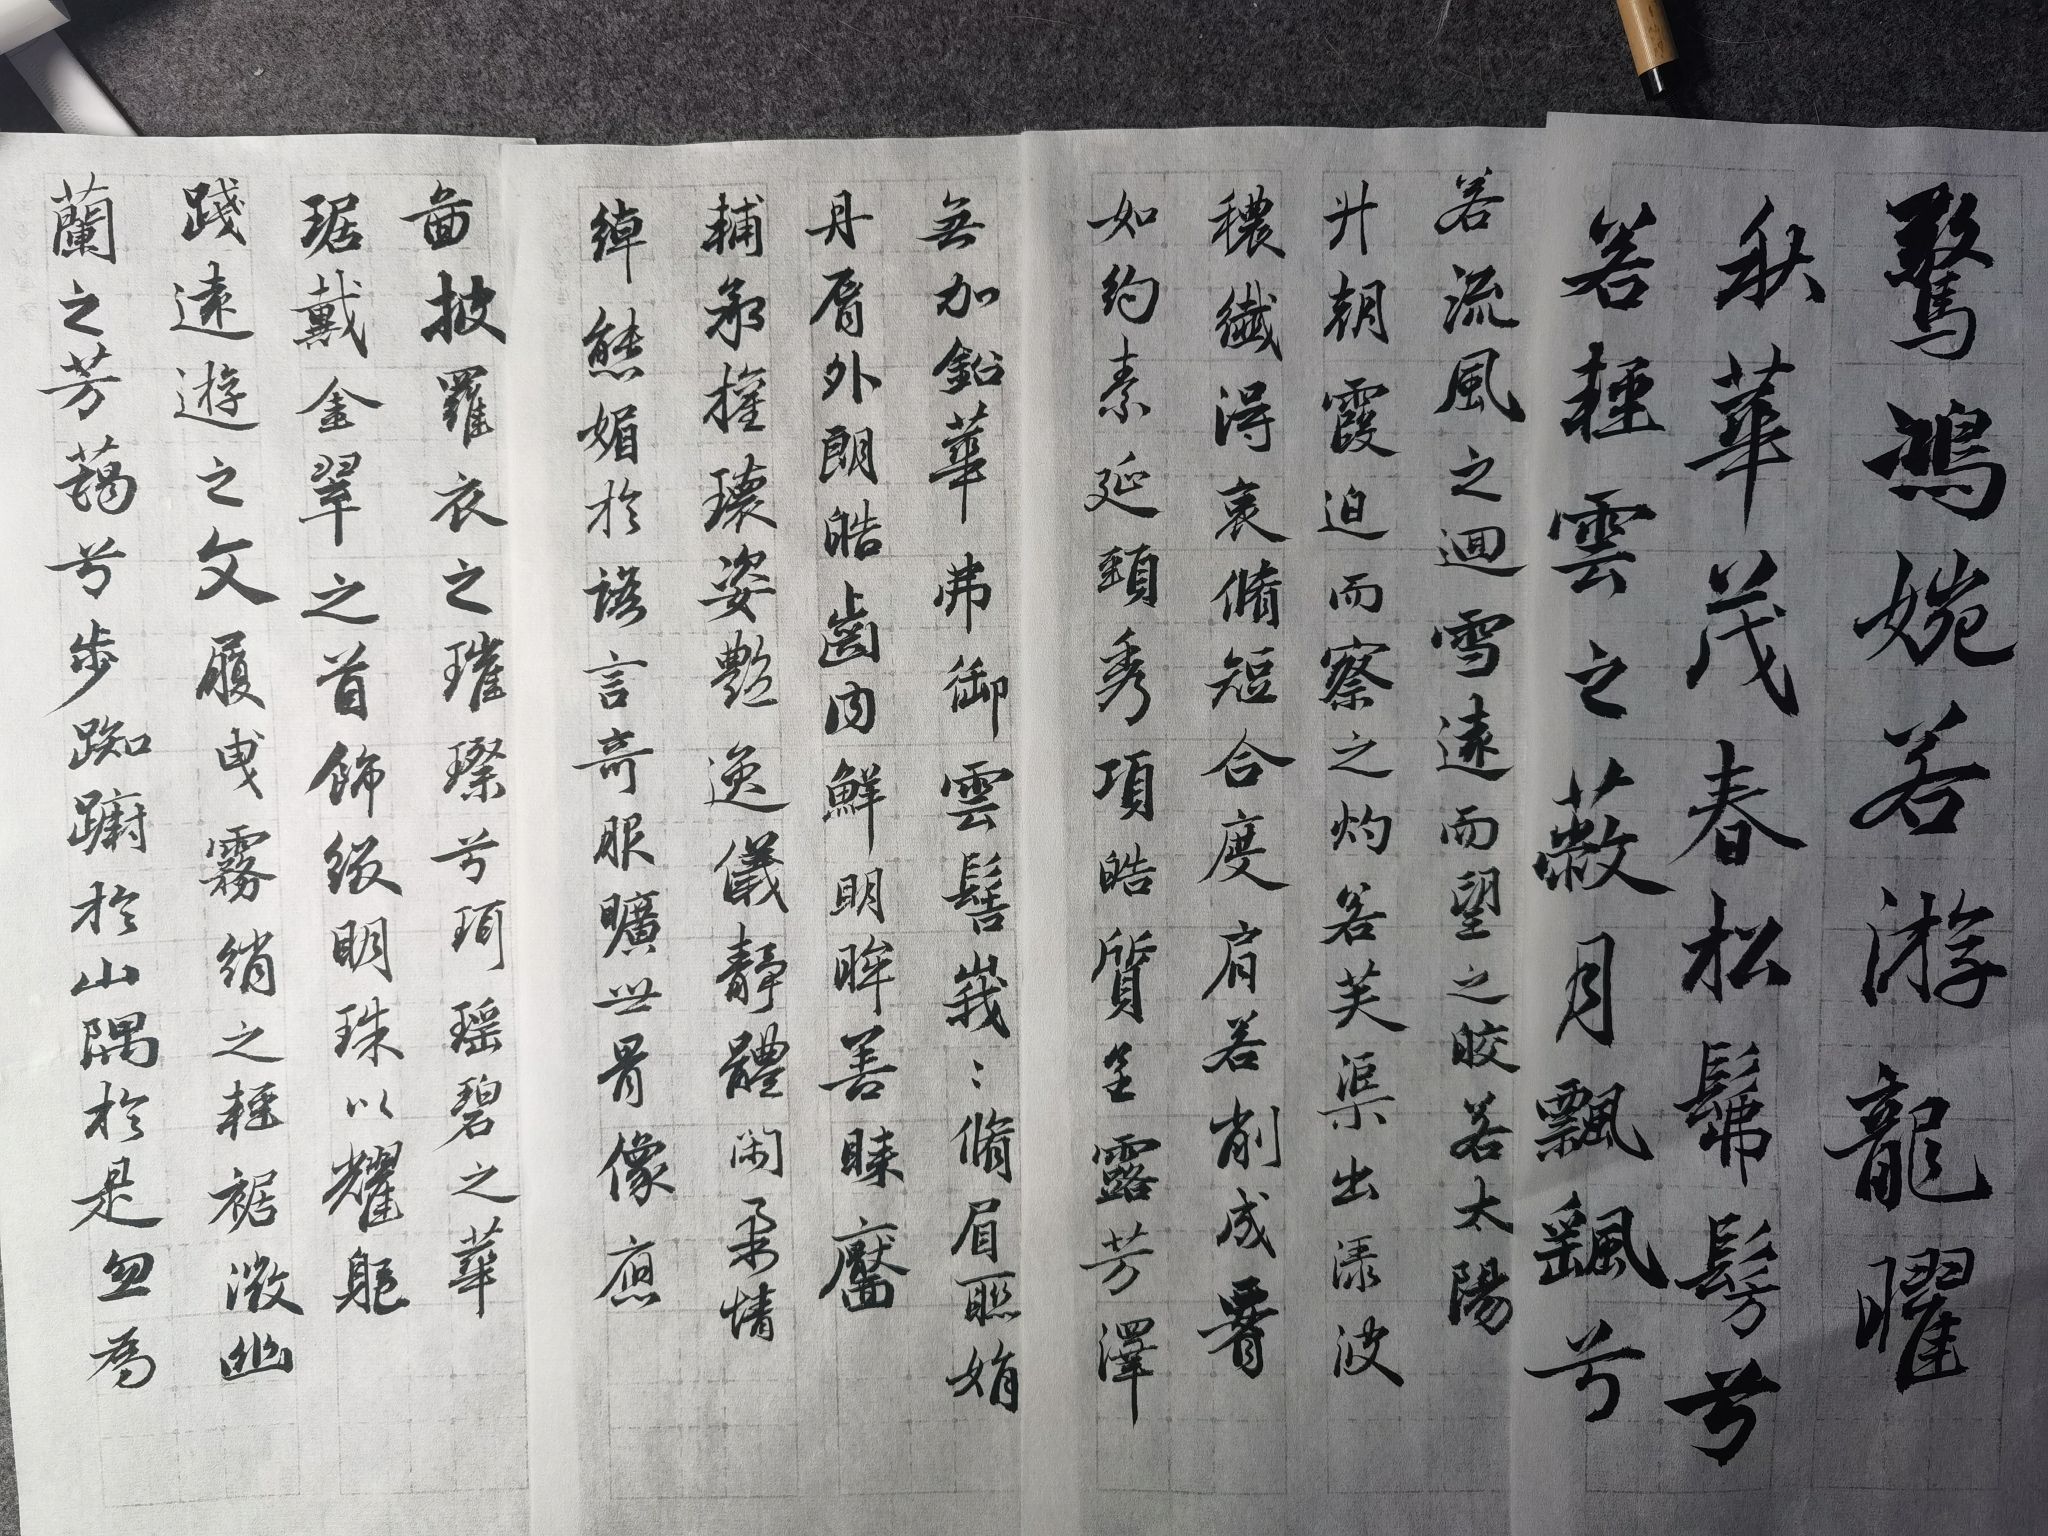 驚鴻婉若游龍曜
秋華茂春松髴髣兮
若輕雲之蔽月飄颻兮
若流風之迴雪遠而望之皎若太陽
升朝霞迫而察之灼若芙渠出淥波
穠纖得衷脩短合度肩若削成署
如約素延頸秀項皓質呈露芳澤
無加鉛華弗御雲髻峩〻脩眉聯娟
丹脣外朗皓齒內鮮明眸善睞靨
輔承權瓌姿艷逸儀靜體閑柔情
綽態媚於語言奇服曠世骨像應
啚披羅衣之璀璨兮珥瑶碧之華
琚戴金翠之首飾綴明珠以耀軀
踐遠遊之文履曳霧綃之輕裾微幽
蘭之芳藹兮步踟躕於山隅於是忽焉